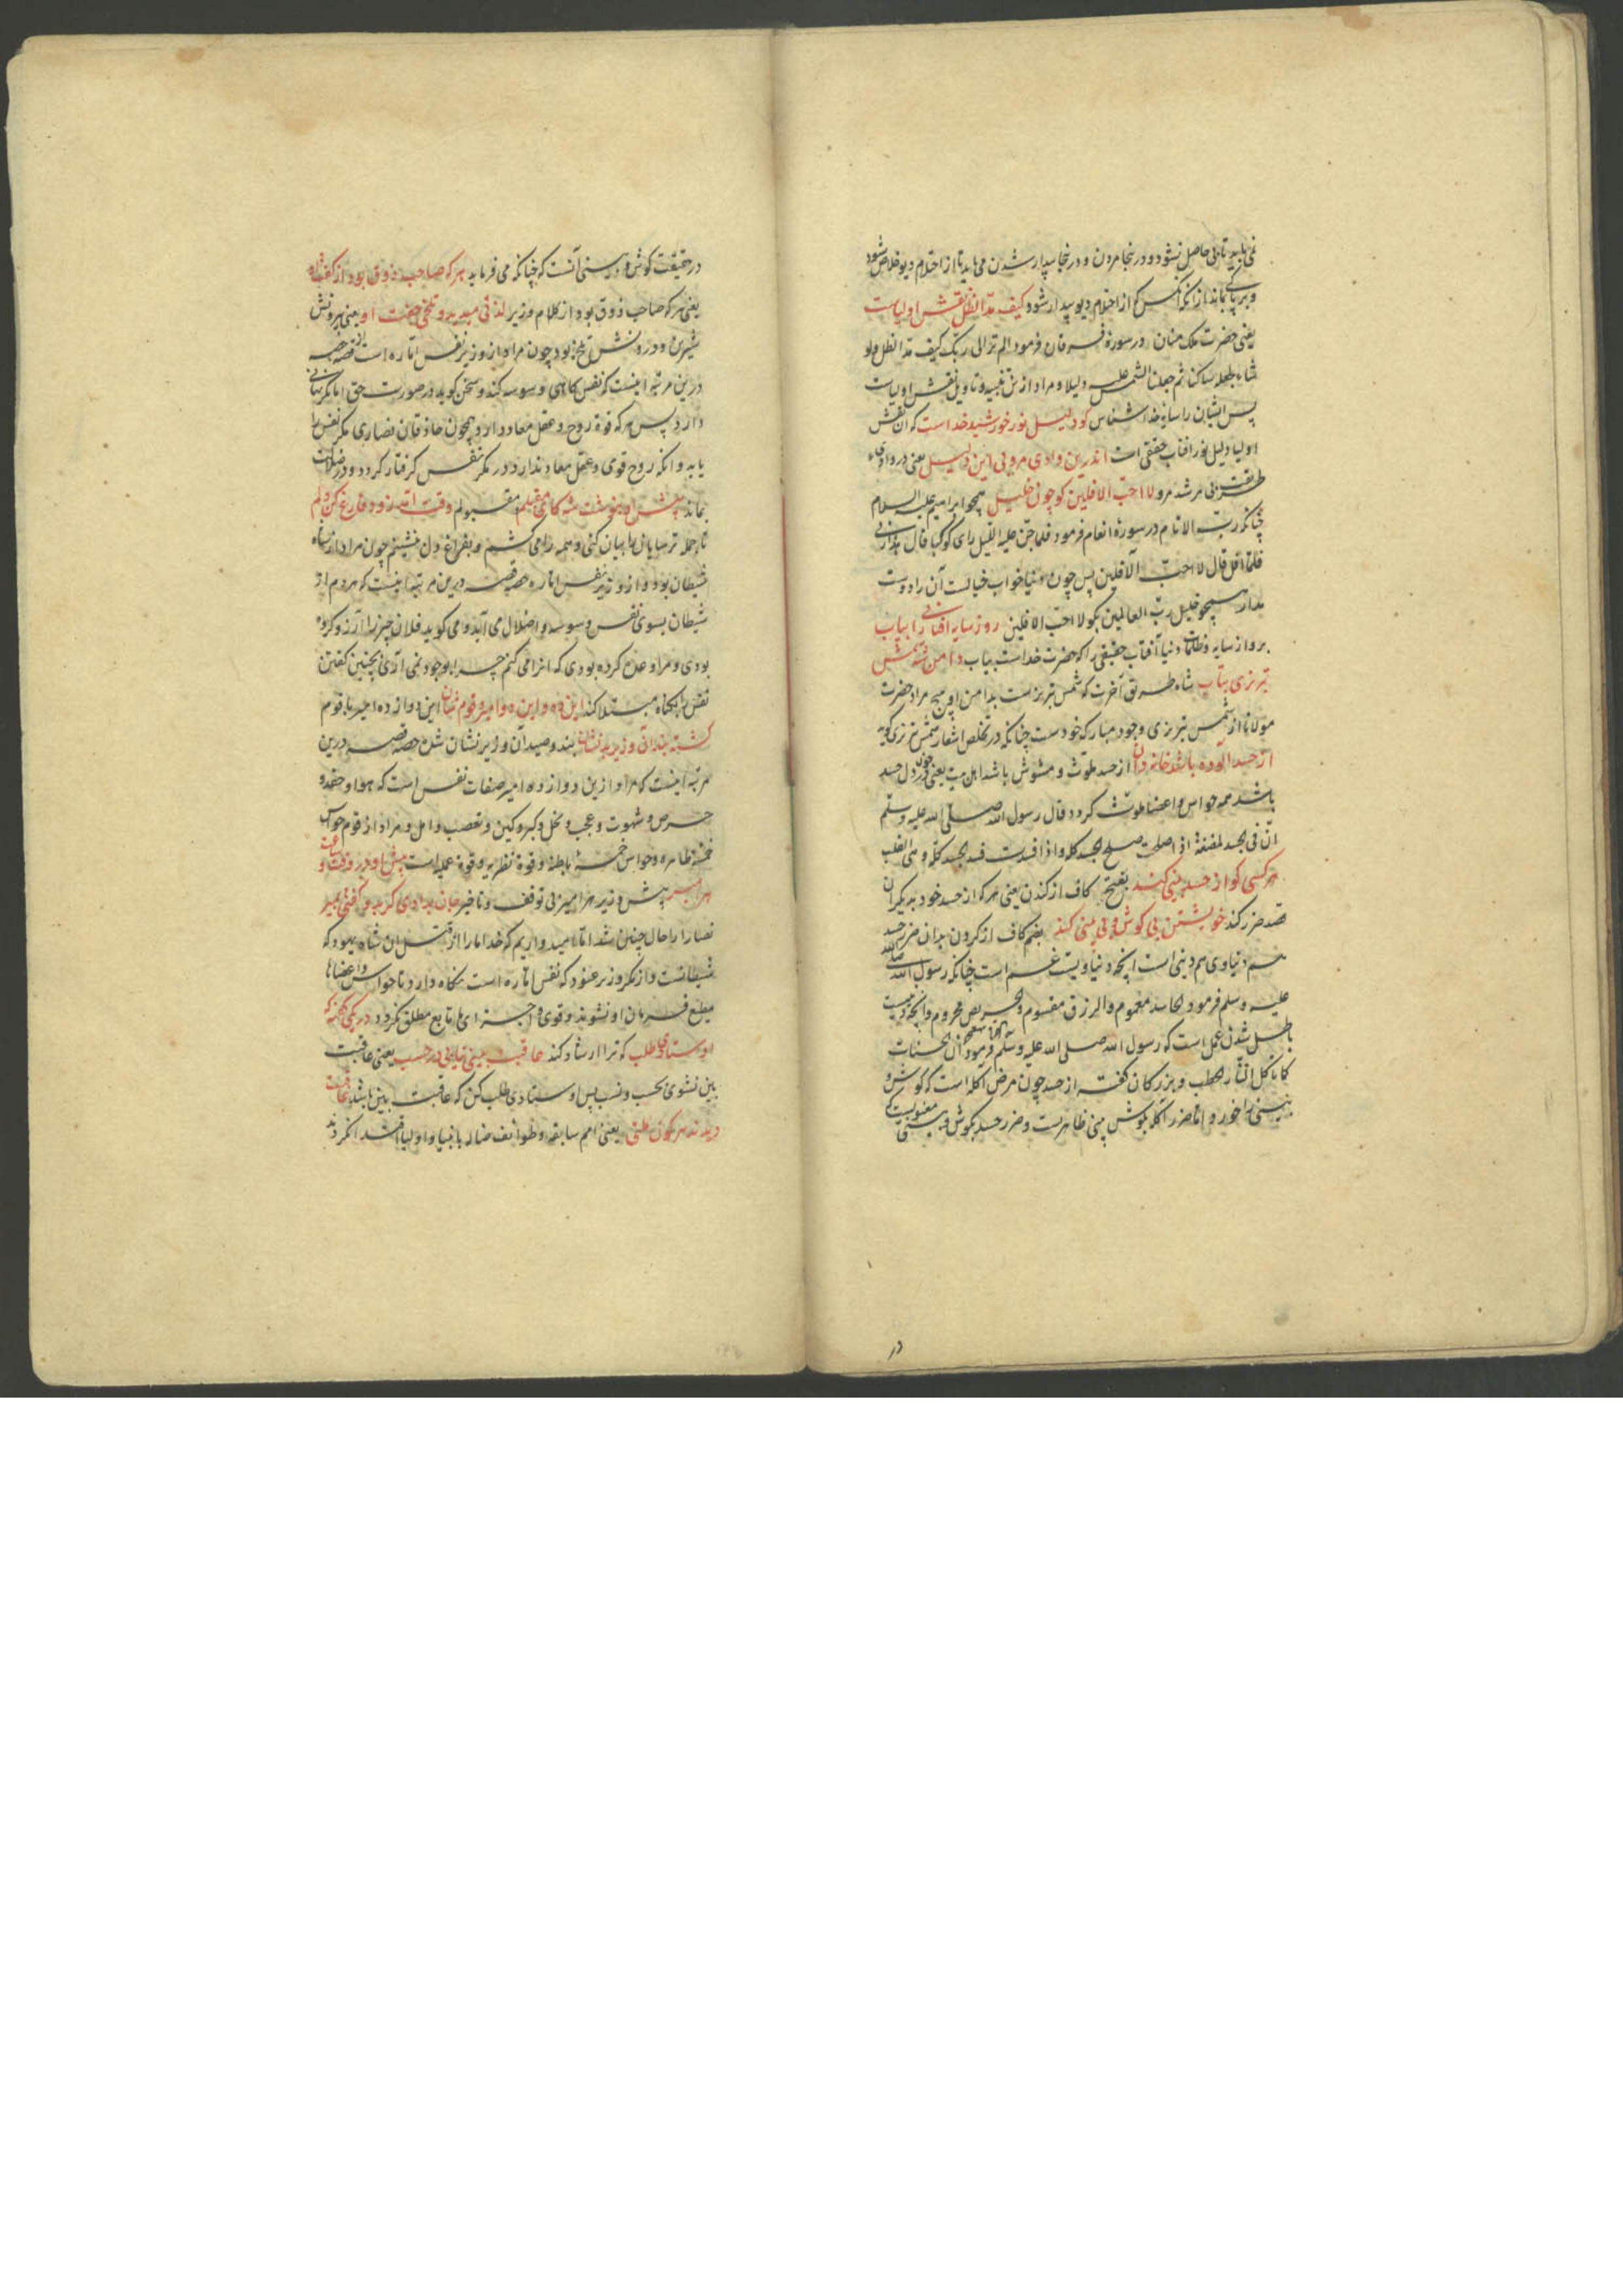 نمی باید تا بی حاصل نشود و در نجا مردن و در نجا بیدار شدن می باید تا از احتلام دیو خلاص شود
و بر پاکی بماند زانکه آنکس که از احتلام دیو بیدار شود کیف مد الظل نقش اولیاست
یعنی حضرت ملک منان در سورة فرقان فرمود الم تر الی ربک کیف مد الظل ولو
شاء لجعله ساکنا ثم جعلنا الشمس علیه دلیلا و مراد ازین تنبیه و تاویل نقش اولیاست
پس ایشان را سایۀ خدا شناس کو دلیل نور خورشید خداست که آن نقش
اولیا دلیل نور افتاب حقیقی است اندرین وادی مرو بی این دلیل یعنی در وادی
طریقت بی مرشد مرو لا احب الافلین کو چون خلیل همچو ابراهیم علیه السلام
چنانکه رب الانام در سورۀ انعام فرمود فلما جن علیه اللیل رای کوکبا قال هذا ربی
فلما افل قال لا احب الآفلین پس چون دنیا خواب خیالست آن را دوست
مدار همچو خلیل رب العالمین بکو لا احب الافلین روز سایه افتابی را بیاب
برو از سایه و ظلمات دنیا آفتاب حقیقی را که حضرت خداست بیاب دامن شه شمس
تبریزی بتاب شاه طریق آخرت که شمس تبریزست بدامن او پیچ مراد حضرت
مولانا از شمس تبریزی وجود مبارک خودست چنانکه در تخلص اشعار شمس تبریزی کوید
از حسد آلوده باشد خاندان از حسد ملوث و مشوش باشد اهل بیت یعنی چون در دل حسد
باشد همه حواس و اعضا ملوث کردد قال رسول الله صلی الله علیه وسلم
ان فی الجسد لمضغة اذا صلحت صلح الجسد کله و اذا فسدت فسد الجسد کله و هی القلب
هر کسی کو از حسد بینی کند بفتح کاف از کندن یعنی هر که از حسد خود بدیکران
قصد ضرر کند خویشتن بی کوش و بی بینی کند بضم کاف از کردن بدان ضرر حسد
هم دنیاوی هم دینی است انچه دنیاویست غم است چنانکه رسول الله صلی الله
علیه وسلم فرمود الحاسد مغموم و الرزق مقسوم و الحریص محروم و انچه دینیست
باطل شدن عمل است که رسول الله صلی الله علیه وسلم فرمود ان الحسنات
کما تاکل النار الحطب و بزرکان کفته از حسد چون مرض اکله است که کوش و
بینی را خورد اما ضرر اکله بکوش بینی ظاهریست و ضرر حسد بکوش و بینی معنویست که
در
در حقیقت کوش و بینی آنست که چنانکه می فرماید هر که صاحب ذوق بود از کفت او
یعنی هر که صاحب ذوق بود از کلام وزیر لذتی میدید و تلخی جفت او یعنی بیرونش
شیرین و درونش تلخ بود چون مراد از وزیر نفس اماره است از قصه حصه
درین مرتبه اینست که نفس کاهی وسوسه کند و سخن کوید در صورت حق اما مکر نهانی
دارد پس هر که قوة روح و عقل معاد دارد همچون حاذقان نصاری مکر نفس را
یابد و انکه روح قوی و عقل معاد ندارد در مکر نفس کرفتار کردد و در ضلالت
بماند پیش او بنوشت شه کای مقبلم مقبولم وقت آمد زود فارغ کن دلم
تا جمله ترسایان را بیان کنی و همه را می کشم و بفراغ دل نشینم چون مراد از شاه
شیطان بود و از وزیر نفس اماره حصه قصه درین مرتبه اینست که هر دم از
شیطان بسوی نفس وسوسه و اضلال می آید و می کوید فلان چیز را آرزو کرده
بودی و مراد عده کرده بودی که انرا می کنم چرا بوجود نمی آری بچنین کفتن
نفس را بکناه مبتلا کند این ده و این دو امیر و قوم شان این دوازده امیر با قوم
کشته بندان وزیر بد نشان بند و صید آن وزیر نشان شده حصه قصه درین
مرتبه اینست که مراد ازین دوازده امیر صفات نفس است که هوا و حقد و
حرص و شهوت و عجب و بخل و کبر و کین و تعصب و امل و مراد از قوم حواس
خمسۀ ظاهره و حواس خمسۀ باطنه و قوة نظریه و قوة عملیه است پیش او در وقت و ساعت
هر امیر پیش وزیر هر امیر بی توقف و تاخیر جان بدادی کر بدو کفتی بمیر
نصارا را حال چنین شد اما امید واریم که خدا ما را از قتل ان شاه یهود که
شیطانست و از مکر وزیر عنود که نفس اماره است نکاه دارد تا حواس و اعضا ما
مطیع فرمان او نشوند و قوی و اجزای ما تابع مطلق نکردد
اوستادی طلب که ترا ارشاد کند عاقبت بینی نیابی در حسب یعنی عاقبت
بین نشوی بحسب و نسب پس اوستادی طلب کن که عاقبت بین باشد عاقبت
دیدند هر کون ملتی یعنی امم سابقه و طوائف ضاله بانبیا و اولیا اقتدا نکردند